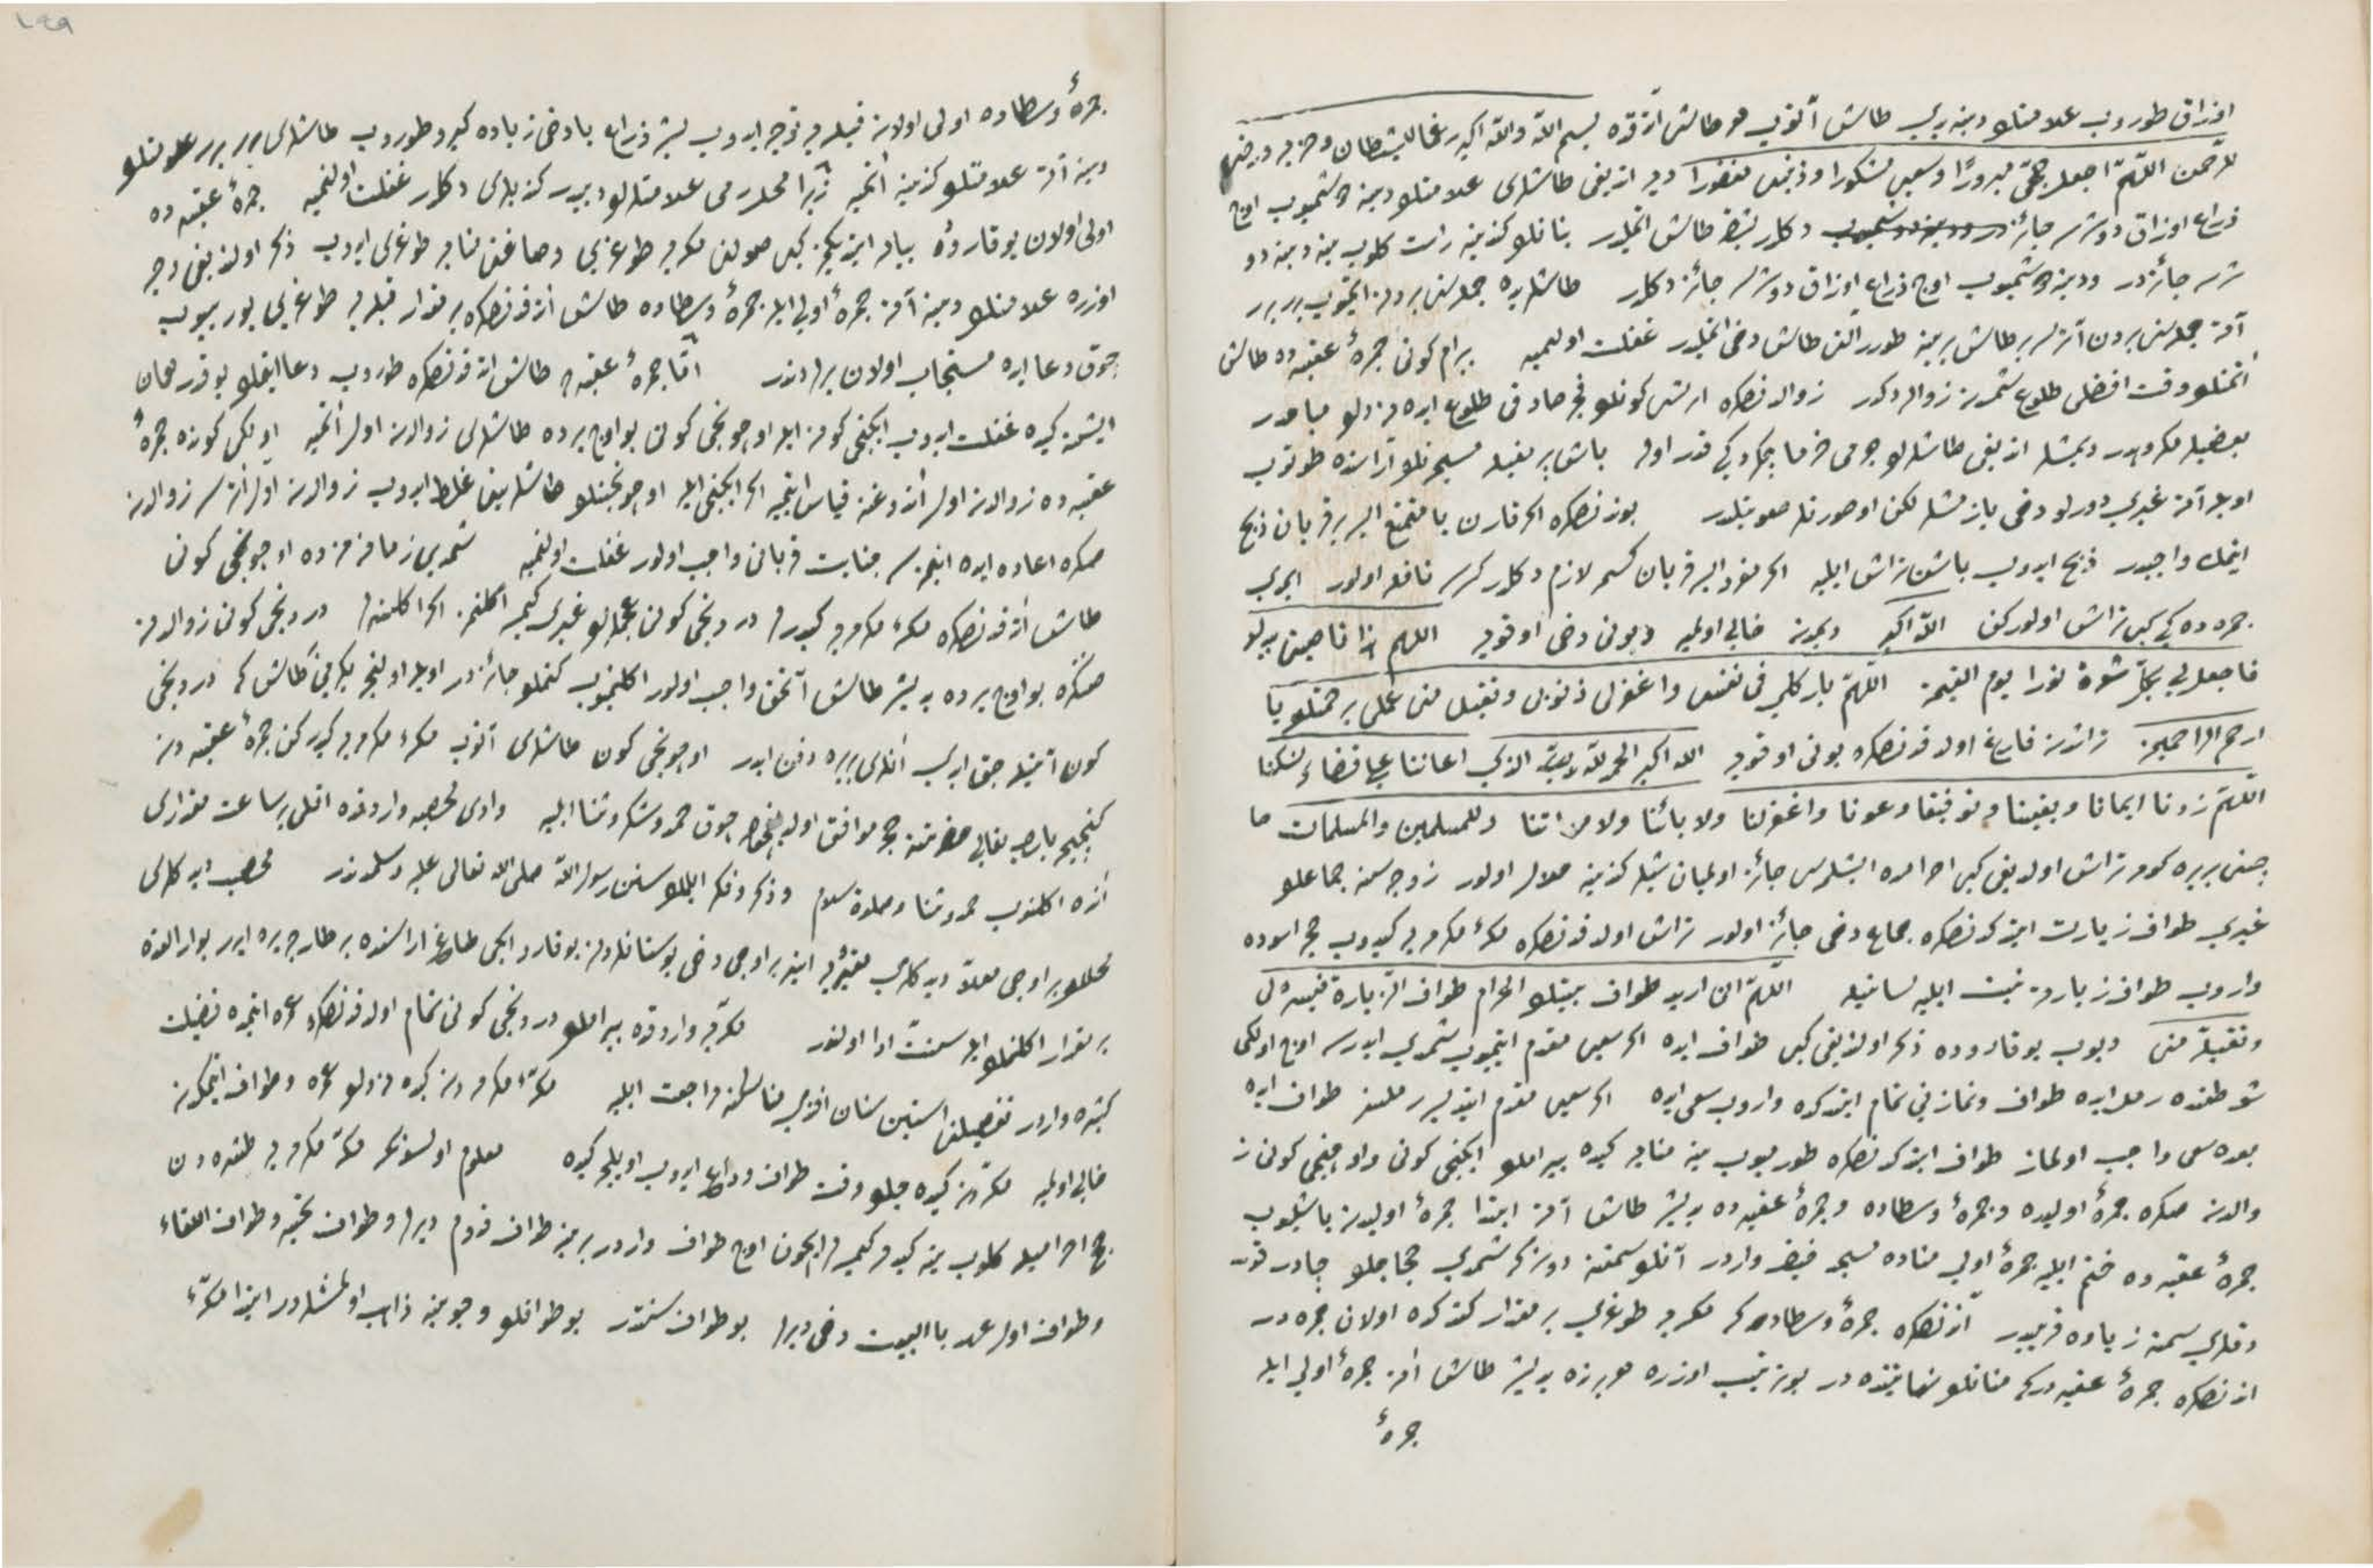 اوزاق طوروب علامتلو دیبنه یدی طاش آتوب هر طاش آتدقده بسم الله والله اکبر رغما للشیطان وحزبه ورضی
للرحمن اللهم اجعل حجی مبرورا وسعیی مشکورا وذنبی مغفورا دیه آتدیغی طاشلری علامتلو دیبنه دوشمیوب اوچ
ذراع اوزاق دوشرسه جائز دکلدر طاش آتمقلر بنانلو کندینه راست کلوب ینه دیبنه دو
شرسه جائزدر ودیبنه دوشمیوب اوچ ذراع اوزاق دوشرسه جائز دکلدر طاشلریده جمله سن بردن آتمیوب برر برر
آته جمله سن بردن آترسه بر طاش یرینه طورر آلتی طاش دخی آتمقلدر غفلت اولنمیه بیرام کونی جمرهٔ عقبه ده طاش
آتمنلو وقت افضلی طلوع شمسدن زواله دکدر زوالدنصکره ایرتسی کونلو فجر صادق طلوع ایدنجه دلو مباحدر
بعضیلر مکروهدر دیمشلر آتدیغی طاشلرلو جرمی خرما چکردکی قدر اوله باش پرمغیله مسبحه نلو آراسنده طوتوب
اویله آته غیری دورلو دخی یازمشلر لکن اوصورتلر صعوبتلدر بوندنصکره اکر قارن یا متمتع ایسه بر قربان ذبح
ایتمک واجبدر ذبح ایدوب باشن تراش ایلیه اکر مفرد ایسه قربان کسمه لازم دکلدر کسرسه نافله اولور ایمدی
جمره ده کی کبی تراش اولورکن الله اکبر دیمدن خالی اولمیه وبونی دخی اوقویه اللهم هذا ناصیتی بیدلو
فاجعل لی بکل شعرة نورا یوم القیمة اللهم بارک لی فی نفسی واغفرلی ذنوبی وتقبل منی عملی برحمتلو یا
ارحم الراحمین تراشدن فارغ اولدقدنصکره بونی اوقویه الله اکبر الحمد لله الذی اعاننا علی قضاء نسکنا
اللهم زدنا ایمانا ویقینا وتوفیقا وعونا واغفرلنا ولابائنا ولامهاتنا وللمسلمین والمسلمات
چنبریره کوره تراش اولدیغی کبی احرامده ایشلمسی جائز اولمیان شیلر کندینه حلال اولور زوجه سنه جماعلو
غیری طواف زیارت ایتدکدنصکره جماع دخی جائز اولور تراش اولدقدنصکره مکهٔ مکرمه یه کیدوب حجر اسوده
واروب طواف زیارته نیت ایلیه لسانیله اللهم انی ارید طواف بیتلو الحرام طواف الزیارة فیسره لی
وتقبله منی دیوب یوقاروده ذکر اولندیغی کبی طواف ایده اکر سعیی مقدم ایتمیوب شمدی ایدرسه اوچ اولکی
شوطنده رمل ایده طواف ونمازینی تمام ایتدکده واروب سعی ایده اکر سعیی مقدم ایتدیسه رملسز طواف ایده
بعده سعی واجب اولماز طواف ایتدکدنصکره طورمیوب ینه منایه کیده بیراملو ایکنجی کونی واوچنجی کونی ز
والدن صکره جمرهٔ اولیده وجمرهٔ وسطاده وجمرهٔ عقبه ده یدیشر طاش آته ابتدا جمرهٔ اولیدن باشلیوب
جمرهٔ عقبه ده ختم ایلیه جمرهٔ اولی مناده مسجد خیف واردر آنلو سمتنه دوشر که شمدی حجاجلو چادر قوند
دقلری سمته زیاده قریبدر آندنصکره جمرهٔ وسطادر که مکه یه طوغری بر مقدار کتدکده اولان جمره در
اندنصکره جمرهٔ عقبه در که منانلو نهایتنده در بو ترتیب اوزره هر برنده یدیشر طاش آته جمرهٔ اولی ایله
جمرهٔ
جمرهٔ وسطاده اولی اولان قبله یه توجه ایدوب بش ذراع یا دخی زیاده کیرو طوروب طاشلری برر برر علامتلو
دیبنه آته علامتلو کندینه آتمیه زیرا محل رمی علامتلرلو دیبیدر کندیلری دکلدر غفلت اولنمیه جمرهٔ عقبه ده
اولی اولان یوقاروده بیان ایتدیکمز کبی صولنی مکه یه طوغری وصاغنی منایه طوغری ایدوب ذکر اولندیغی وجه
اوزره علامتلو دیبنه آته جمرهٔ اولی ایله جمرهٔ وسطاده طاش آتدقدنصکره بر مقدار قبله یه طوغری یوریوب
چوق دعا ایده مستجاب اولان یرلردندر اما جمرهٔ عقبه ده طاش آتدقدنصکره طوروب دعا ایتملو یوقدر همان
ایشنه کیده غفلت ایدوب ایکنجی کون ایله اوچونجی کونی بو اوچ یرده طاشلری زوالدن اول آتمیه اولکی کونده جمرهٔ
عقبه ده زوالدن اول آتدوغنه قیاس ایتمیه اکر ایکنجی ایله اوچونجینلو طاشلرینی غلط ایدوب زوالدن اول آترسه زوالدن
صکره اعاده ایده ایتمزسه جنایت قربانی واجب اولور غفلت اولنمیه شمدیزمانمزده اوچونجی کونی
طاش آتدقدنصکره مکهٔ مکرمه یه کیدرلر دردنجی کونی عجملرلو غیری کیمسه اکلنمز اکر اکلنورلر دردنجی کونی زوالدن
صکره بو اوچ یرده یدیشر طاش آتمق واجب اولور اکلنمیوب کتملو جائزدر اویله اولنجه یکرمی طاش که دردنجی
کون آتیلیجق ایدی انلری بریره دفن ایدر اوچونجی کون طاشلری آتوب مکهٔ مکرمه یه کیدرکن جمرهٔ عقبه دن
کچیجه باری تعالی حضرتنه حج موافق اولدیغیچون چوق حمد وشکر وثنا ایلیه وادی محصبه واردقده اقل بر ساعت مقداری
آنده اکلنوب حمد وثنا وصلوة سلام وذکر وفکر ایللو سنن رسول الله صلی الله تعالی علیه وسلمدندر محصب دیدکلری
محللو بر اوجی معلا دیدکلری مقبره یه اینر بر اوجی دخی بوستانلردن یوقارو ایکی طاغ اراسنده بر طار جه یره ایرر بو ارالقده
بر مقدار اکلنملو ایله سنت ادا اولنور مکه یه واردقده بیراملو دردنجی کونی تمام اولدقدنصکره عمره ایتمده فضیلت
کثیره واردر تفصیلن استین سنان افندی مناسکنه مراجعت ایلیه مکهٔ مکرمه دن کیدنجه دلو عمره وطواف ایتمکدن
خالی اولمیه مکه دن کیده جلو وقت طواف وداع ایدوب اویلجه کیده معلوم اولسونکه مکهٔ مکرمه یه طشره دن
حج احرامیله کلوب ینه کیدر کیمسه لر ایچون اوچ طواف واردر برینه طواف قدوم دیرلر وطواف تحیه وطواف اللقاء
وطواف اول عهد باالبیت دخی دیرلر بو طواف سنتدر بو طوافلو وجوبینه ذاهب اولمشلردر ایتدا مکهٔ